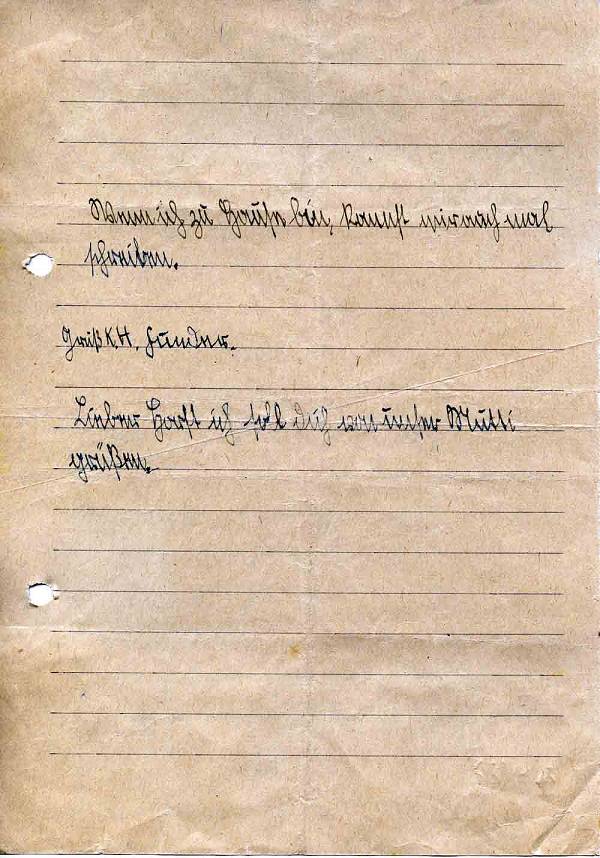 Wenn ich zu Hause bin, kannst mir nach mal
schreiben.
Gruß K.H. Hunder.
Lieber Horst ich soll dich von unser Mutti
grüßen.